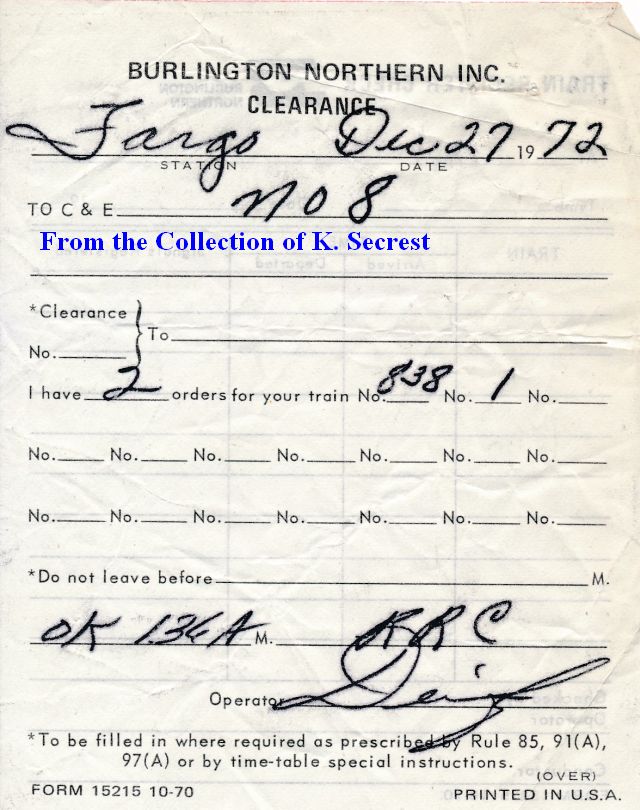 BURLINGTON NORTHERN INC.
CLEARANCE
Fargo Dec 27 19 72
STATION DATE
TO C & E No 8
From the Collection of K. Secrest
*Clearance
No. } To
I have 2 orders for your train No. 838 No. 1 No.
No. No. No. No. No. No. No.
No. No. No. No. No. No. No.
*Do not leave before M.
OK 136A M. RRC
Operator
*To be filled in where required as prescribed by Rule 85, 91(A),
97(A) or by time-table special instructions.
(OVER)
FORM 15215 10-70 PRINTED IN U.S.A.